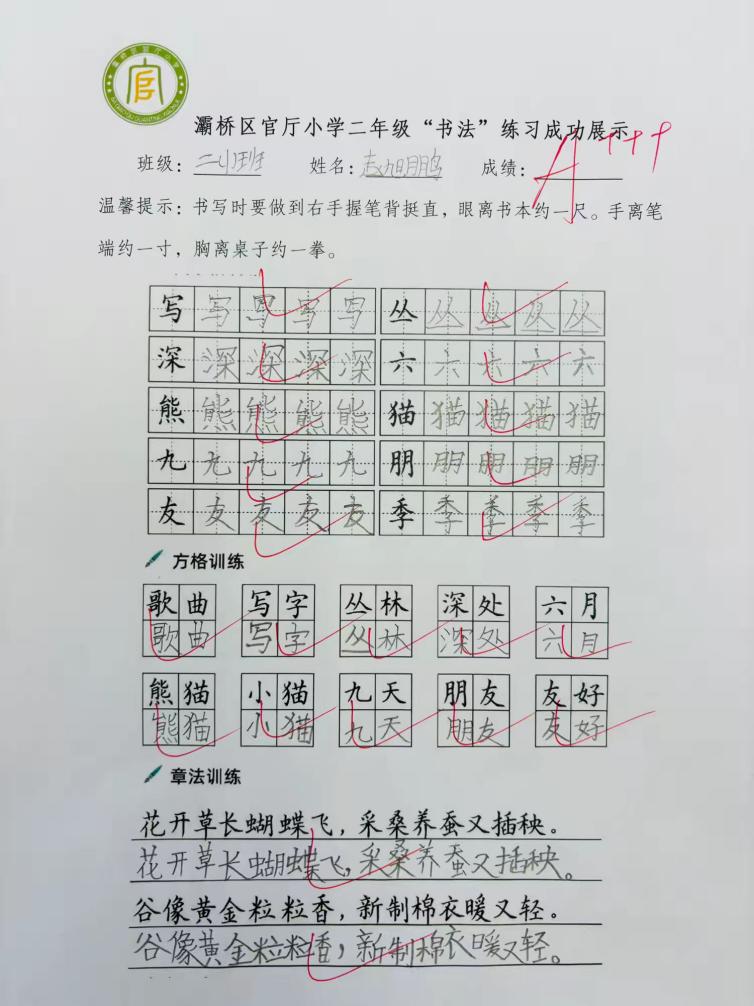 灞桥区官厅小学二年级“书法”练习成功展示
班级：二小班 姓名：志旭鹏 成绩：A+++
温馨提示：书写时要做到右手握笔背挺直，眼离书本约一尺。手离笔
端约一寸，胸离桌子约一拳。
写 写 写 写 写 丛 丛 丛 丛 丛
深 深 深 深 深 六 六 六 六 六
熊 熊 熊 熊 熊 猫 猫 猫 猫 猫
九 九 九 九 九 朋 朋 朋 朋 朋
友 友 友 友 友 季 季 季 季 季
方格训练
歌曲 写字 丛林 深处 六月
歌曲 写字 丛林 深处 六月
熊猫 小猫 九天 朋友 友好
熊猫 小猫 九天 朋友 友好
章法训练
花开草长蝴蝶飞，采桑养蚕又插秧。
花开草长蝴蝶飞，采桑养蚕又插秧。
谷像黄金粒粒香，新制棉衣暖又轻。
谷像黄金粒粒香，新制棉衣暖又轻。